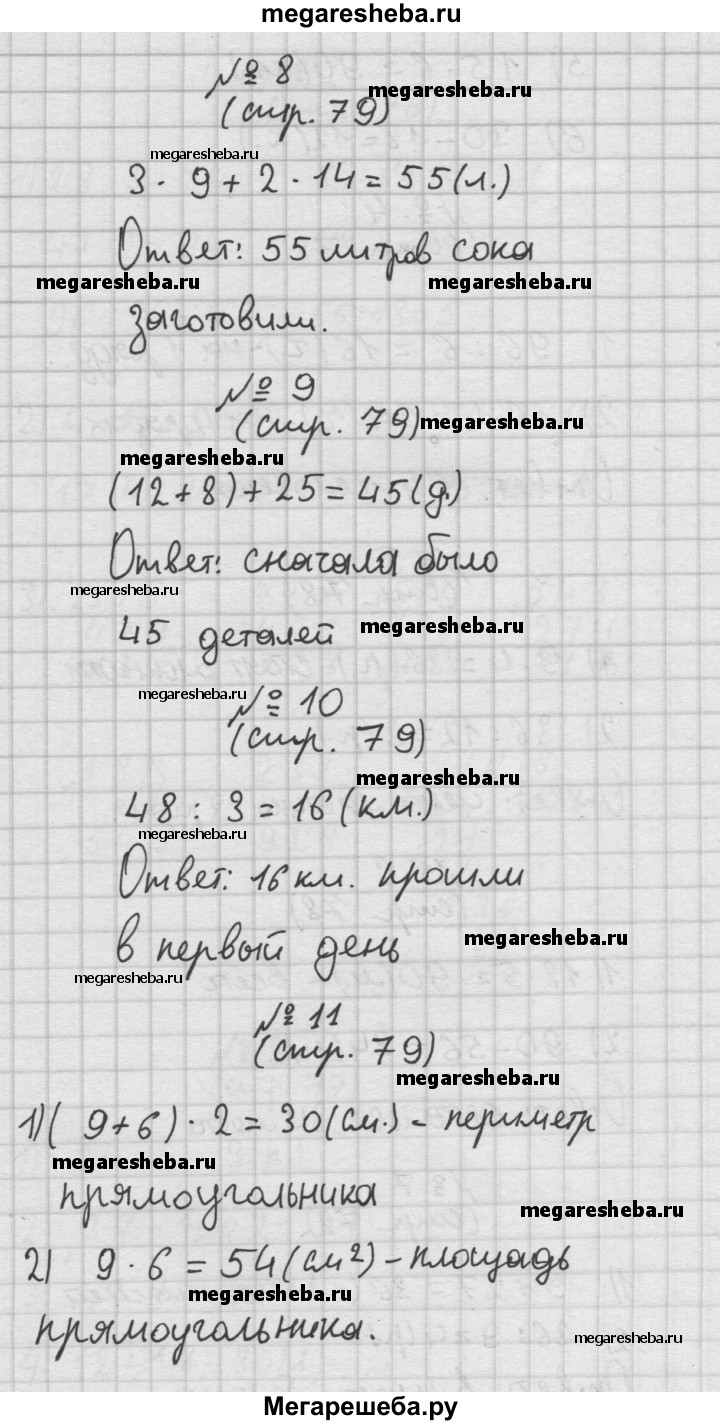 megaresheba.ru
№ 8
megaresheba.ru
(стр. 79)
megaresheba.ru
3 · 9 + 2 · 14 = 55 (л.)
Ответ: 55 литров сока
megaresheba.ru megaresheba.ru
заготовили.
№ 9
(стр. 79) megaresheba.ru
megaresheba.ru
(12 + 8) + 25 = 45 (д.)
Ответ: сначала было
megaresheba.ru
45 деталей megaresheba.ru
megaresheba.ru
№ 10
(стр. 79)
megaresheba.ru
48 : 3 = 16 (км.)
megaresheba.ru
Ответ: 16 км. прошли
в первый день megaresheba.ru
megaresheba.ru
№ 11
(стр. 79)
megaresheba.ru
1) (9 + 6) · 2 = 30 (см.) – периметр
megaresheba.ru
прямоугольника
megaresheba.ru
2) 9 · 6 = 54 (см²) – площадь
megaresheba.ru
прямоугольника.
megaresheba.ru
Мегарешеба.ру